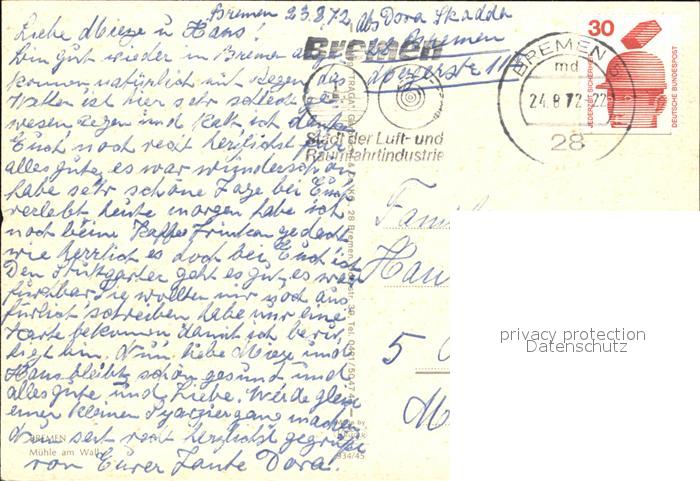 Bremen 23.8.72
Abs Dora Skadda
Bremen
Liebe Mieze u Hans!
Bin gut wieder in Bremen
kommen natürlich mit Regen, das
Wetter ist hier sehr schlecht
wesen Regen und Kalt ich danke
Euch noch recht herzlichst für
alles gute, es war wunderschön
habe sehr schöne Tage bei Euch
verlebt heute morgen habe ich
noch beim Kaffee trinken gedacht
wie herzlich es doch bei Euch ist
Den Stuttgarter geht es gut, es war
furchtbar Sie wollten mir noch aus
fürlich schreiben habe nur eine
Karte bekommen damit ich beru
higt bin. Nun liebe Mieze und
Hans bleibt schön gesund und
alles gute und Liebe. Werde gleich
einen kleinen machen
Nun seit recht herzlichst gegrüßt
von Eurer Tante Dora.
Bremen
Stadt der Luft- und
Raumfahrtindustrie
BREMEN 5
md
24.8.72-22
28
30
JEDERZEIT SICHERHEIT
DEUTSCHE BUNDESPOST
Famil
Han
5
M
28 Bremen
BREMEN
Mühle am Wall
934/45
privacy protection
Datenschutz